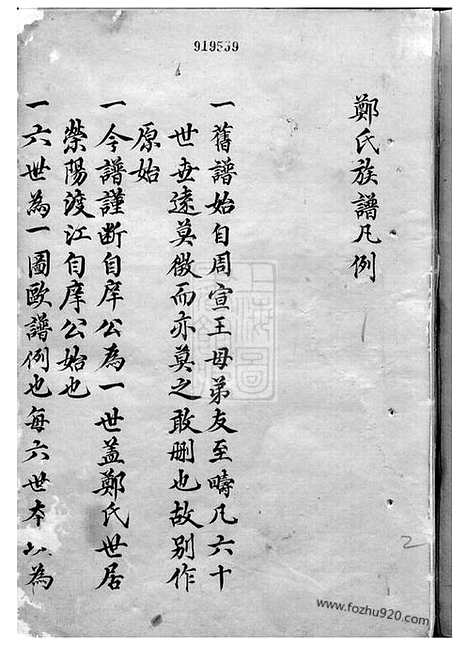 919539
鄭氏族譜凡例
一舊譜始自周宣王母弟友至疇凡六十
世世遠莫徵而亦莫之敢删也故別作
原始
一今譜謹断自庠公為一世盖鄭氏世居
滎陽渡江自庠公始也
一六世為一圖歐譜例也每六世本以為
2
www.fozhu920.com